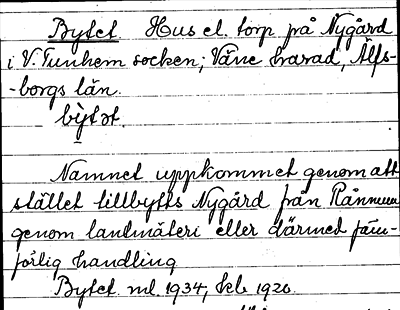 Bytet. Hus el. torp på Nygård
i V. Tunhem socken; Väne härad, Älfs-
-borgs län.
bỳtət.
Namnet uppkommet genom att
stället tillbytts Nygård från Rånnum
genom lantmäteri eller därmed jäm-
förlig handling
Bytet. ml. 1934, Ieb. 1920.